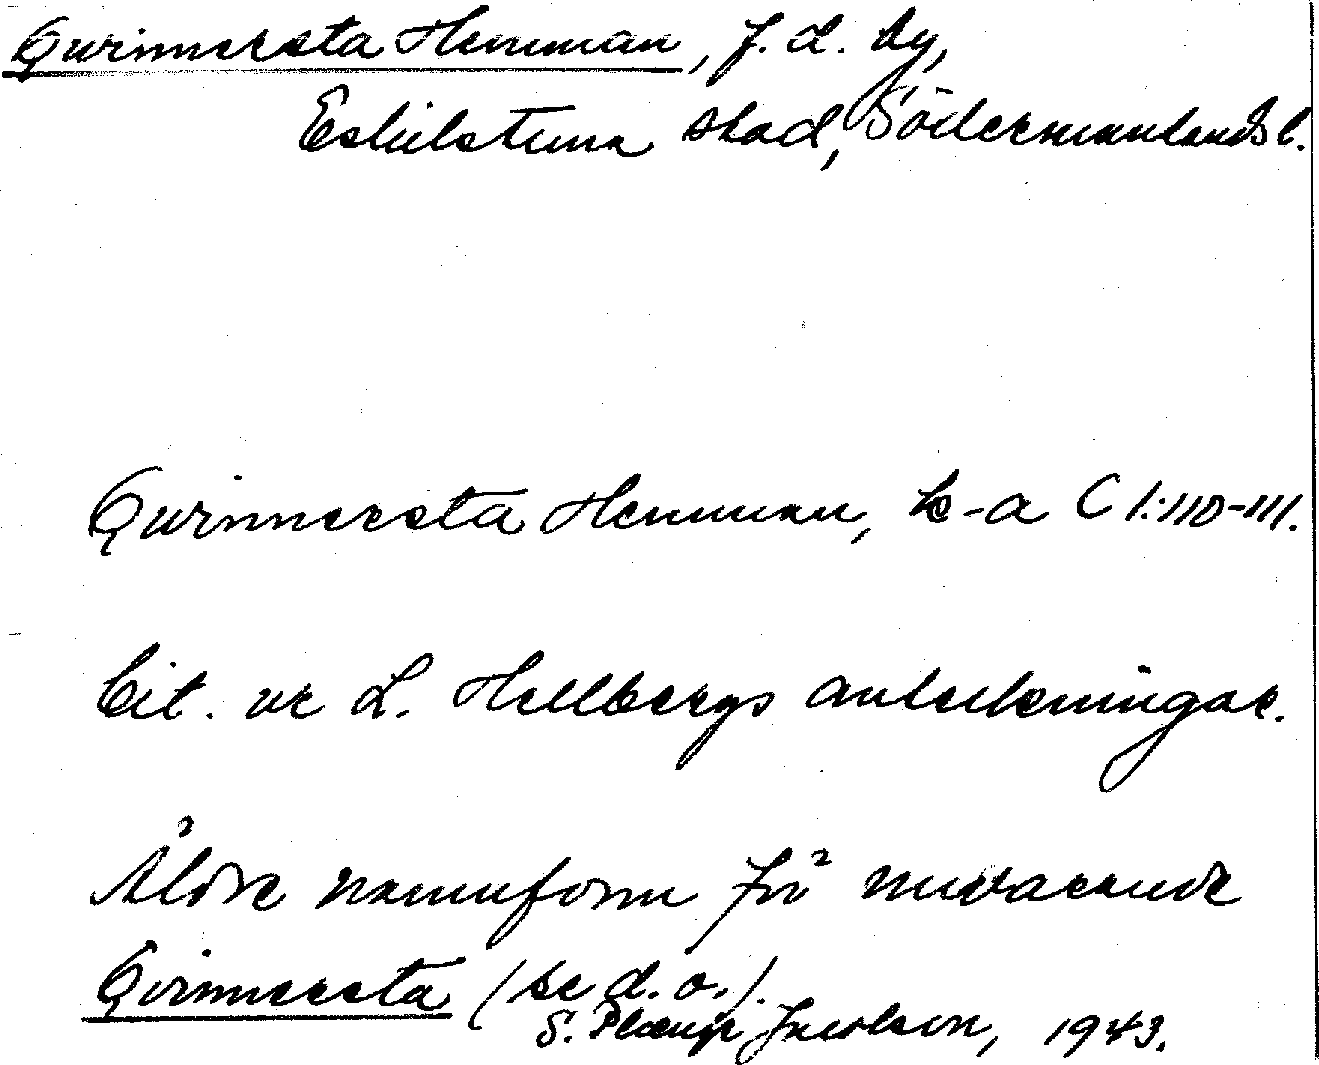 Qwinnersta Hemman, f.d. by,
Eskilstuna stad, Södermanlands l.
Qwinnersta Hemman, k-a C 1:110-111.
Cit. ur L. Hellbergs anteckningar.
Äldre namnform för nuvarande
Qvinnersta (se d.o.).
S. 1943.